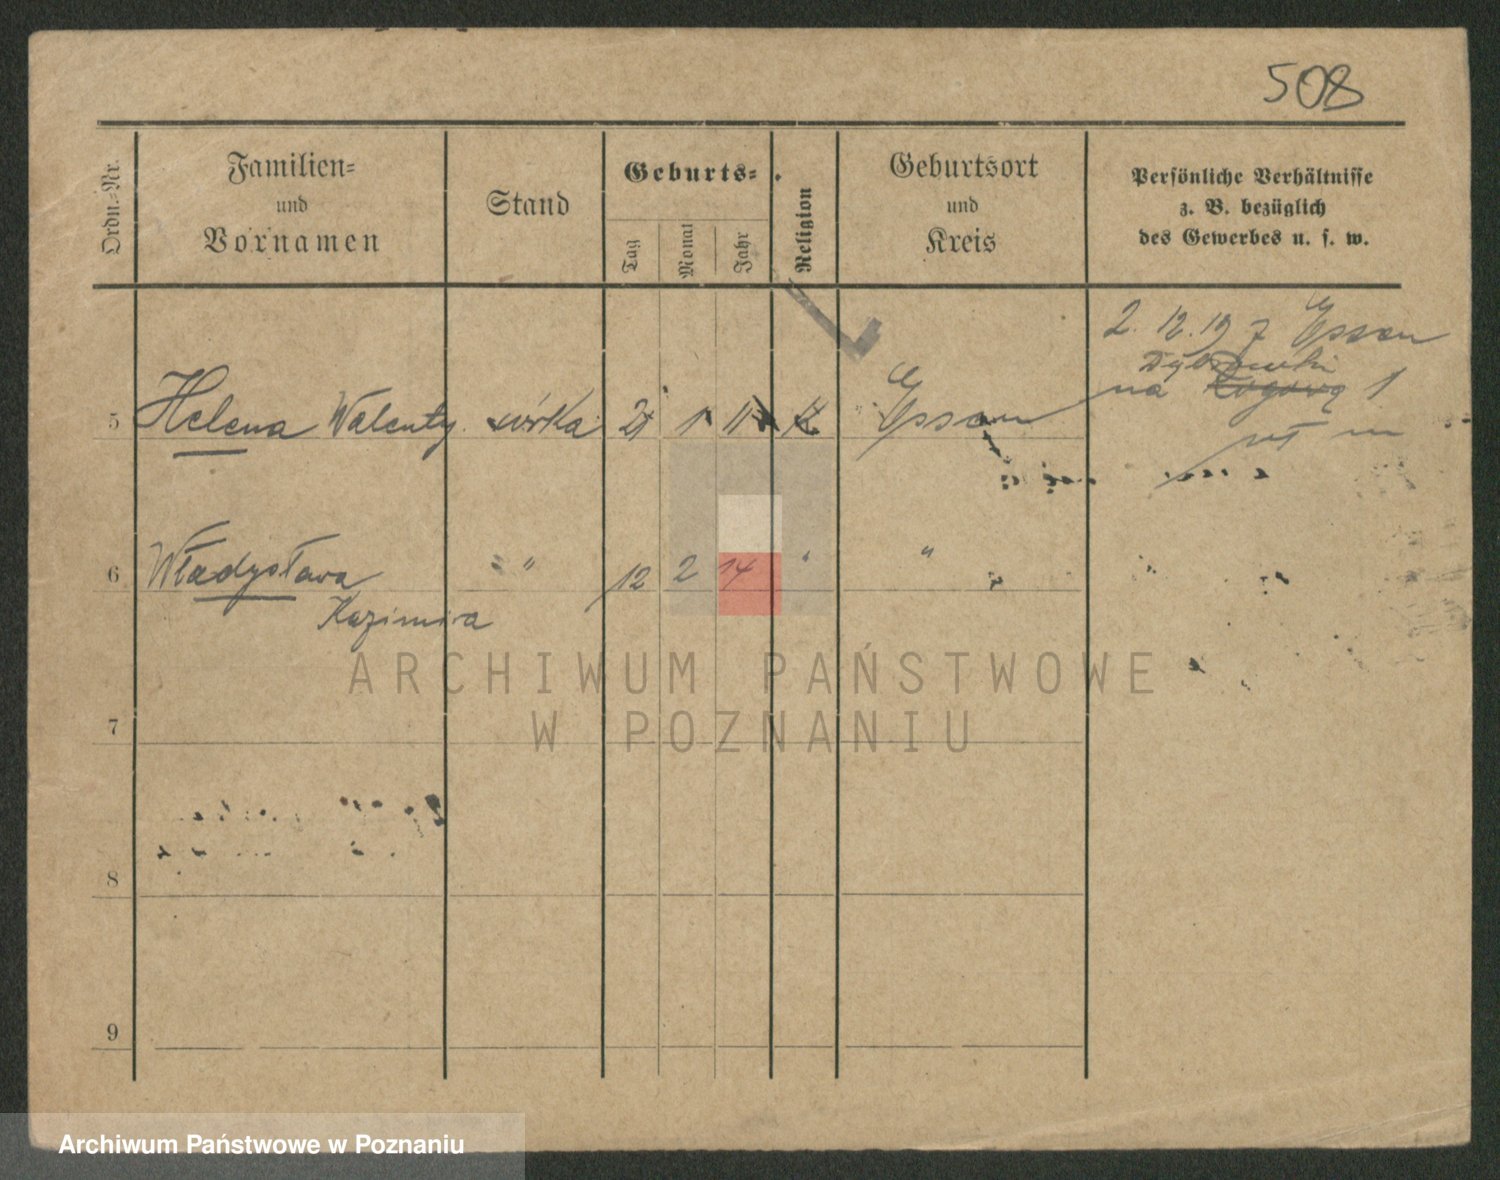 508
Ordn.-Nr.
Familien-
und
Vornamen
Stand
Geburts-
Tag
Monat
Jahr
Religion
Geburtsort
und
Kreis
Persönliche Verhältnisse
z. B. bezüglich
des Gewerbes u. s. w.
2. 12. 19 z Essen
na
5 Helena Walenty córka 1 11 Essen
6 Władysława " 12 2 14 " "
Kazimira
7
8
9
ARCHIWUM PAŃSTWOWE
W POZNANIU
Archiwum Państwowe w Poznaniu